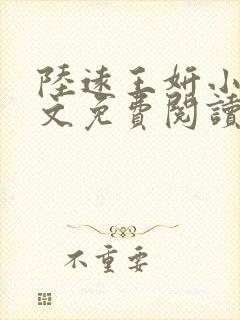 陸遠王妍小
文免費閱讀
不重要